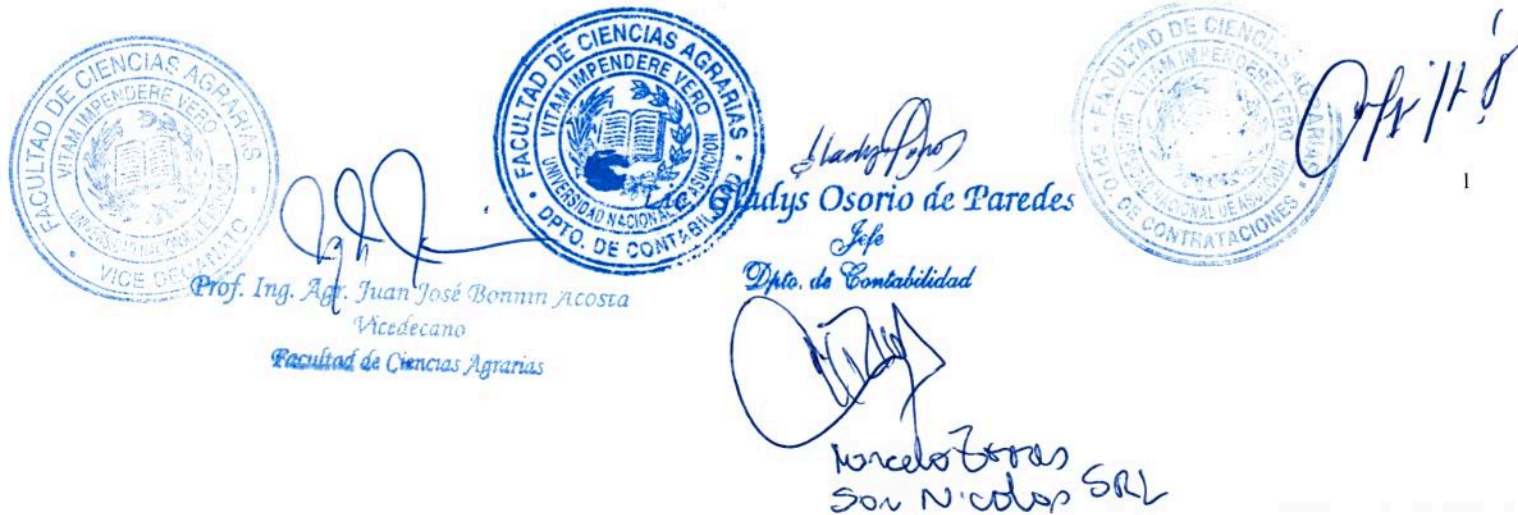 FACULTAD DE CIENCIAS AGRARIAS
VITAM IMPENDERE VERO
VICE DECANATO
Prof. Ing. Agr. Juan José Bonnin Acosta
Vicedecano
Facultad de Ciencias Agrarias
FACULTAD DE CIENCIAS AGRARIAS
VITAM IMPENDERE VERO
UNIVERSIDAD NACIONAL DE ASUNCION
DPTO. DE CONTABILIDAD
Lic. Gladys Osorio de Paredes
Jefe
Dpto. de Contabilidad
Marcelo
San Nicolas SRL
FACULTAD DE CIENCIAS AGRARIAS
VITAM IMPENDERE VERO
UNIVERSIDAD NACIONAL DE ASUNCION
DPTO. DE CONTRATACIONES
1